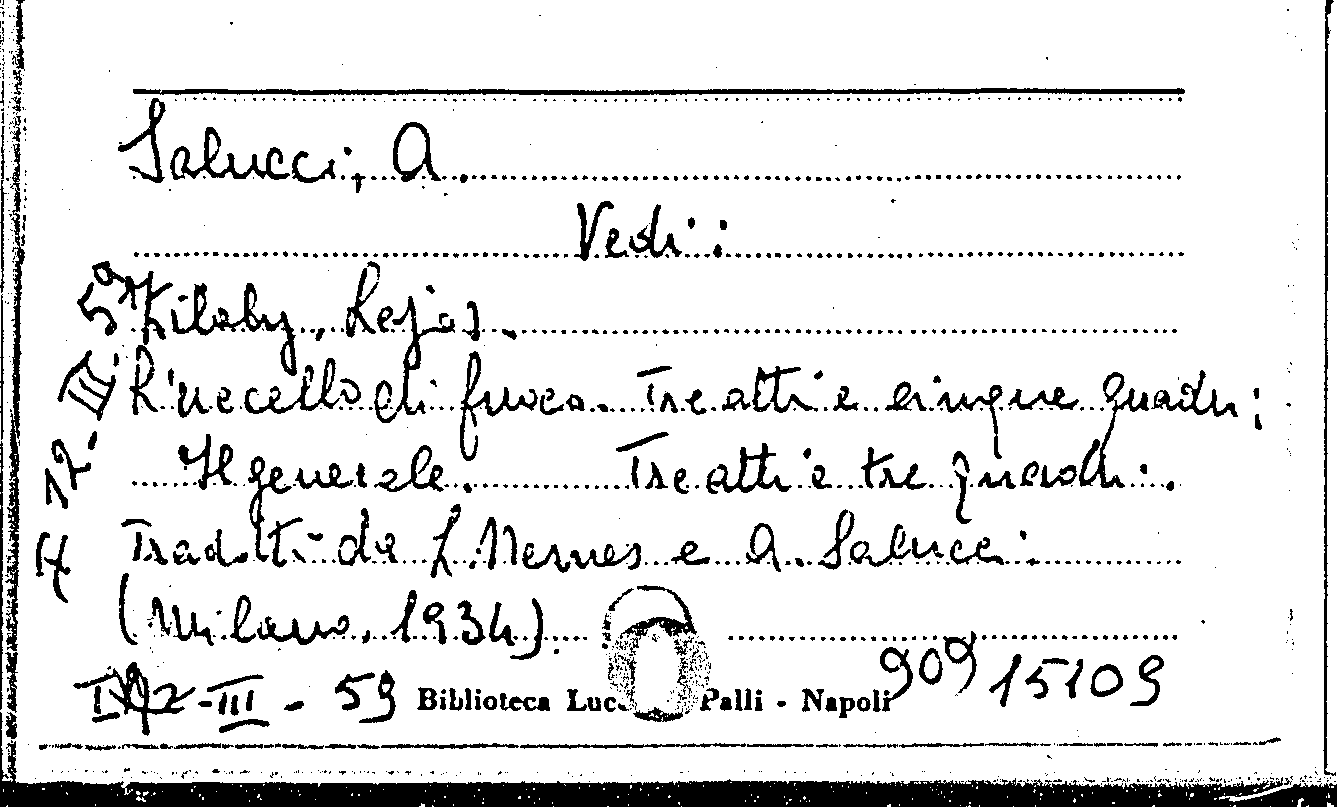 Salucci, A.
Vedi:
Zilahy, Lajos.
L'uccello di fuoco. Tre atti e cinque quadri;
Il generale. Tre atti e tre quadri.
Tradotti da I. Nemes e A. Salucci.
(Milano, 1934).
III - 59 Biblioteca Palli - Napoli 909 15109